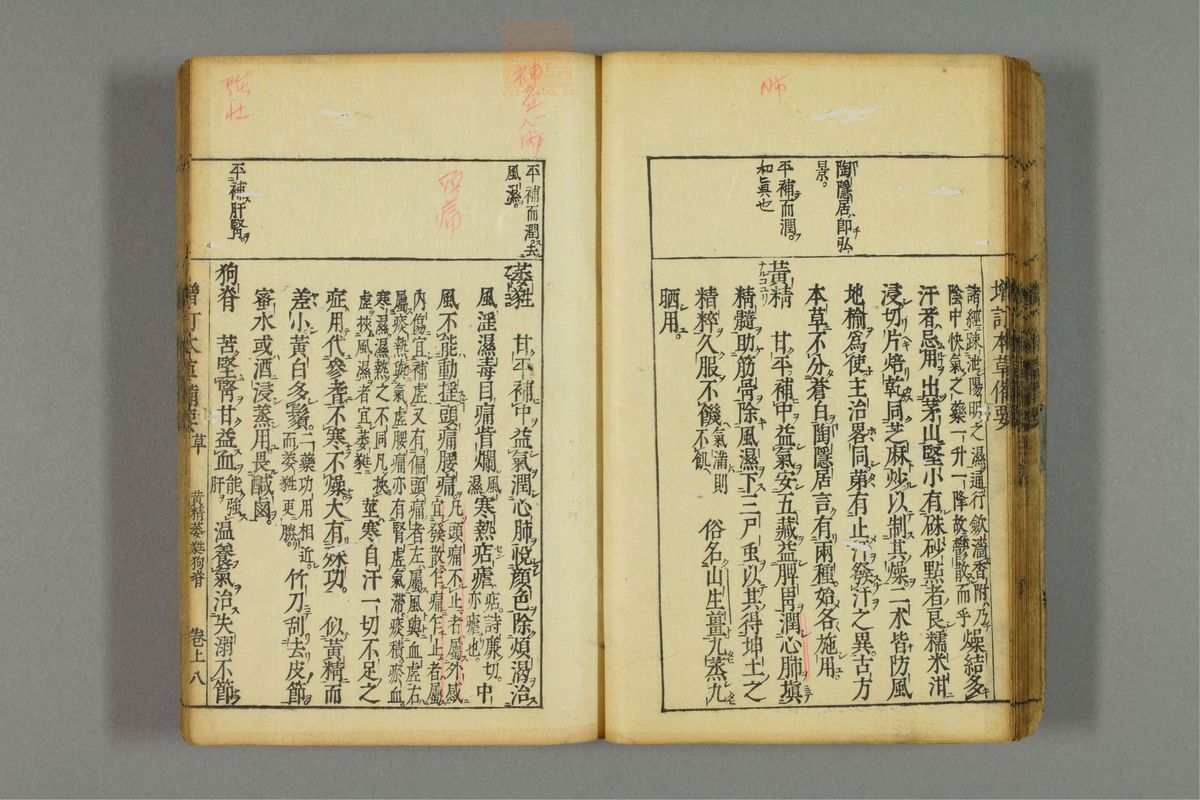 肺
陶隱居即弘
景。
平補而潤。
和眞也
增訂本草備要
諸經疎泄陽明之濕通行
陰中快氣之藥一升一降故鬱散而平
歛濇香附乃
燥結多
汗者忌用出茅山堅小有硃砂點者良糯米泔
浸切片焙乾同芝麻炒以制其燥二朮皆防風
地榆爲使主治畧同第有止汗發汗之異古方
本草不分蒼白陶隱居言有兩種始各施用
黃精
ナルコユリ
甘平補中益氣安五藏益脾胃潤心肺塡
精髓助筋骨除風濕下三尸虫以其得坤土之
精粹久服不饑氣滿則
不飢
俗名山生薑九蒸九
晒用。
神益心肺
强壯
頭痛
平補而潤去
風濕。
平補肝腎
萎蕤
甘平補中益氣潤心肺悅顏色除煩渴治
風淫濕毒目痛眥爛風
濕
寒熱痁瘧痁詩廉切。
亦瘧也
中
風不能動搖頭痛腰痛凡頭痛不止者屬外感
宜發散乍痛乍止者屬
內傷宜補虛又有偏頭痛者左屬風與血虛右
屬痰熱與氣虛腰痛亦有腎虛氣滯痰積瘀血
寒濕濕熱之不同凡挾
虛挾風濕者宜萎蕤
莖寒自汗一切不足之
症用代參耆不寒不燥大有殊功。
似黃精而
差小黃白多鬚二藥功用相近
而萎蕤更勝。
竹刀刮去皮節
蜜水或酒浸蒸用畏鹹鹵。
狗脊
苦堅腎甘益血能強
肝
温養氣治失溺不節
增訂本草備要
草
黃精萎蕤狗脊
卷上
八